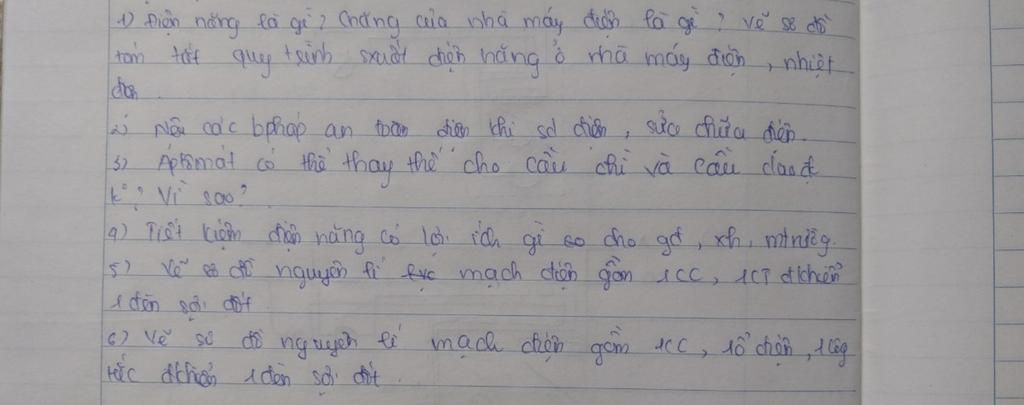 1) Điện năng là gì? Chăng của nhà máy điện là gì? Vẽ sơ đồ
tóm tắt quy trình sxuất điện năng ở nhà máy điện, nhiệt
điện
2) Nêu các bpháp an toàn điện khi sd điện, sửa chữa điện.
3) Áptomát có thể thay thế cho cầu chì và cầu dao đ
k°? Vì sao?
4) Tiết kiệm điện năng có lợi ích gì cho gđ, xh, mtrườg.
5) Vẽ sơ đồ nguyên lí mạch điện gồm 1CC, 1CT đkhiển
1 đèn sợi đốt
6) Vẽ sơ đồ nguyên lí mạch điện gồm 1CC, 1ổ điện, 1côg
tắc đkhiển 1 đèn sợi đốt.